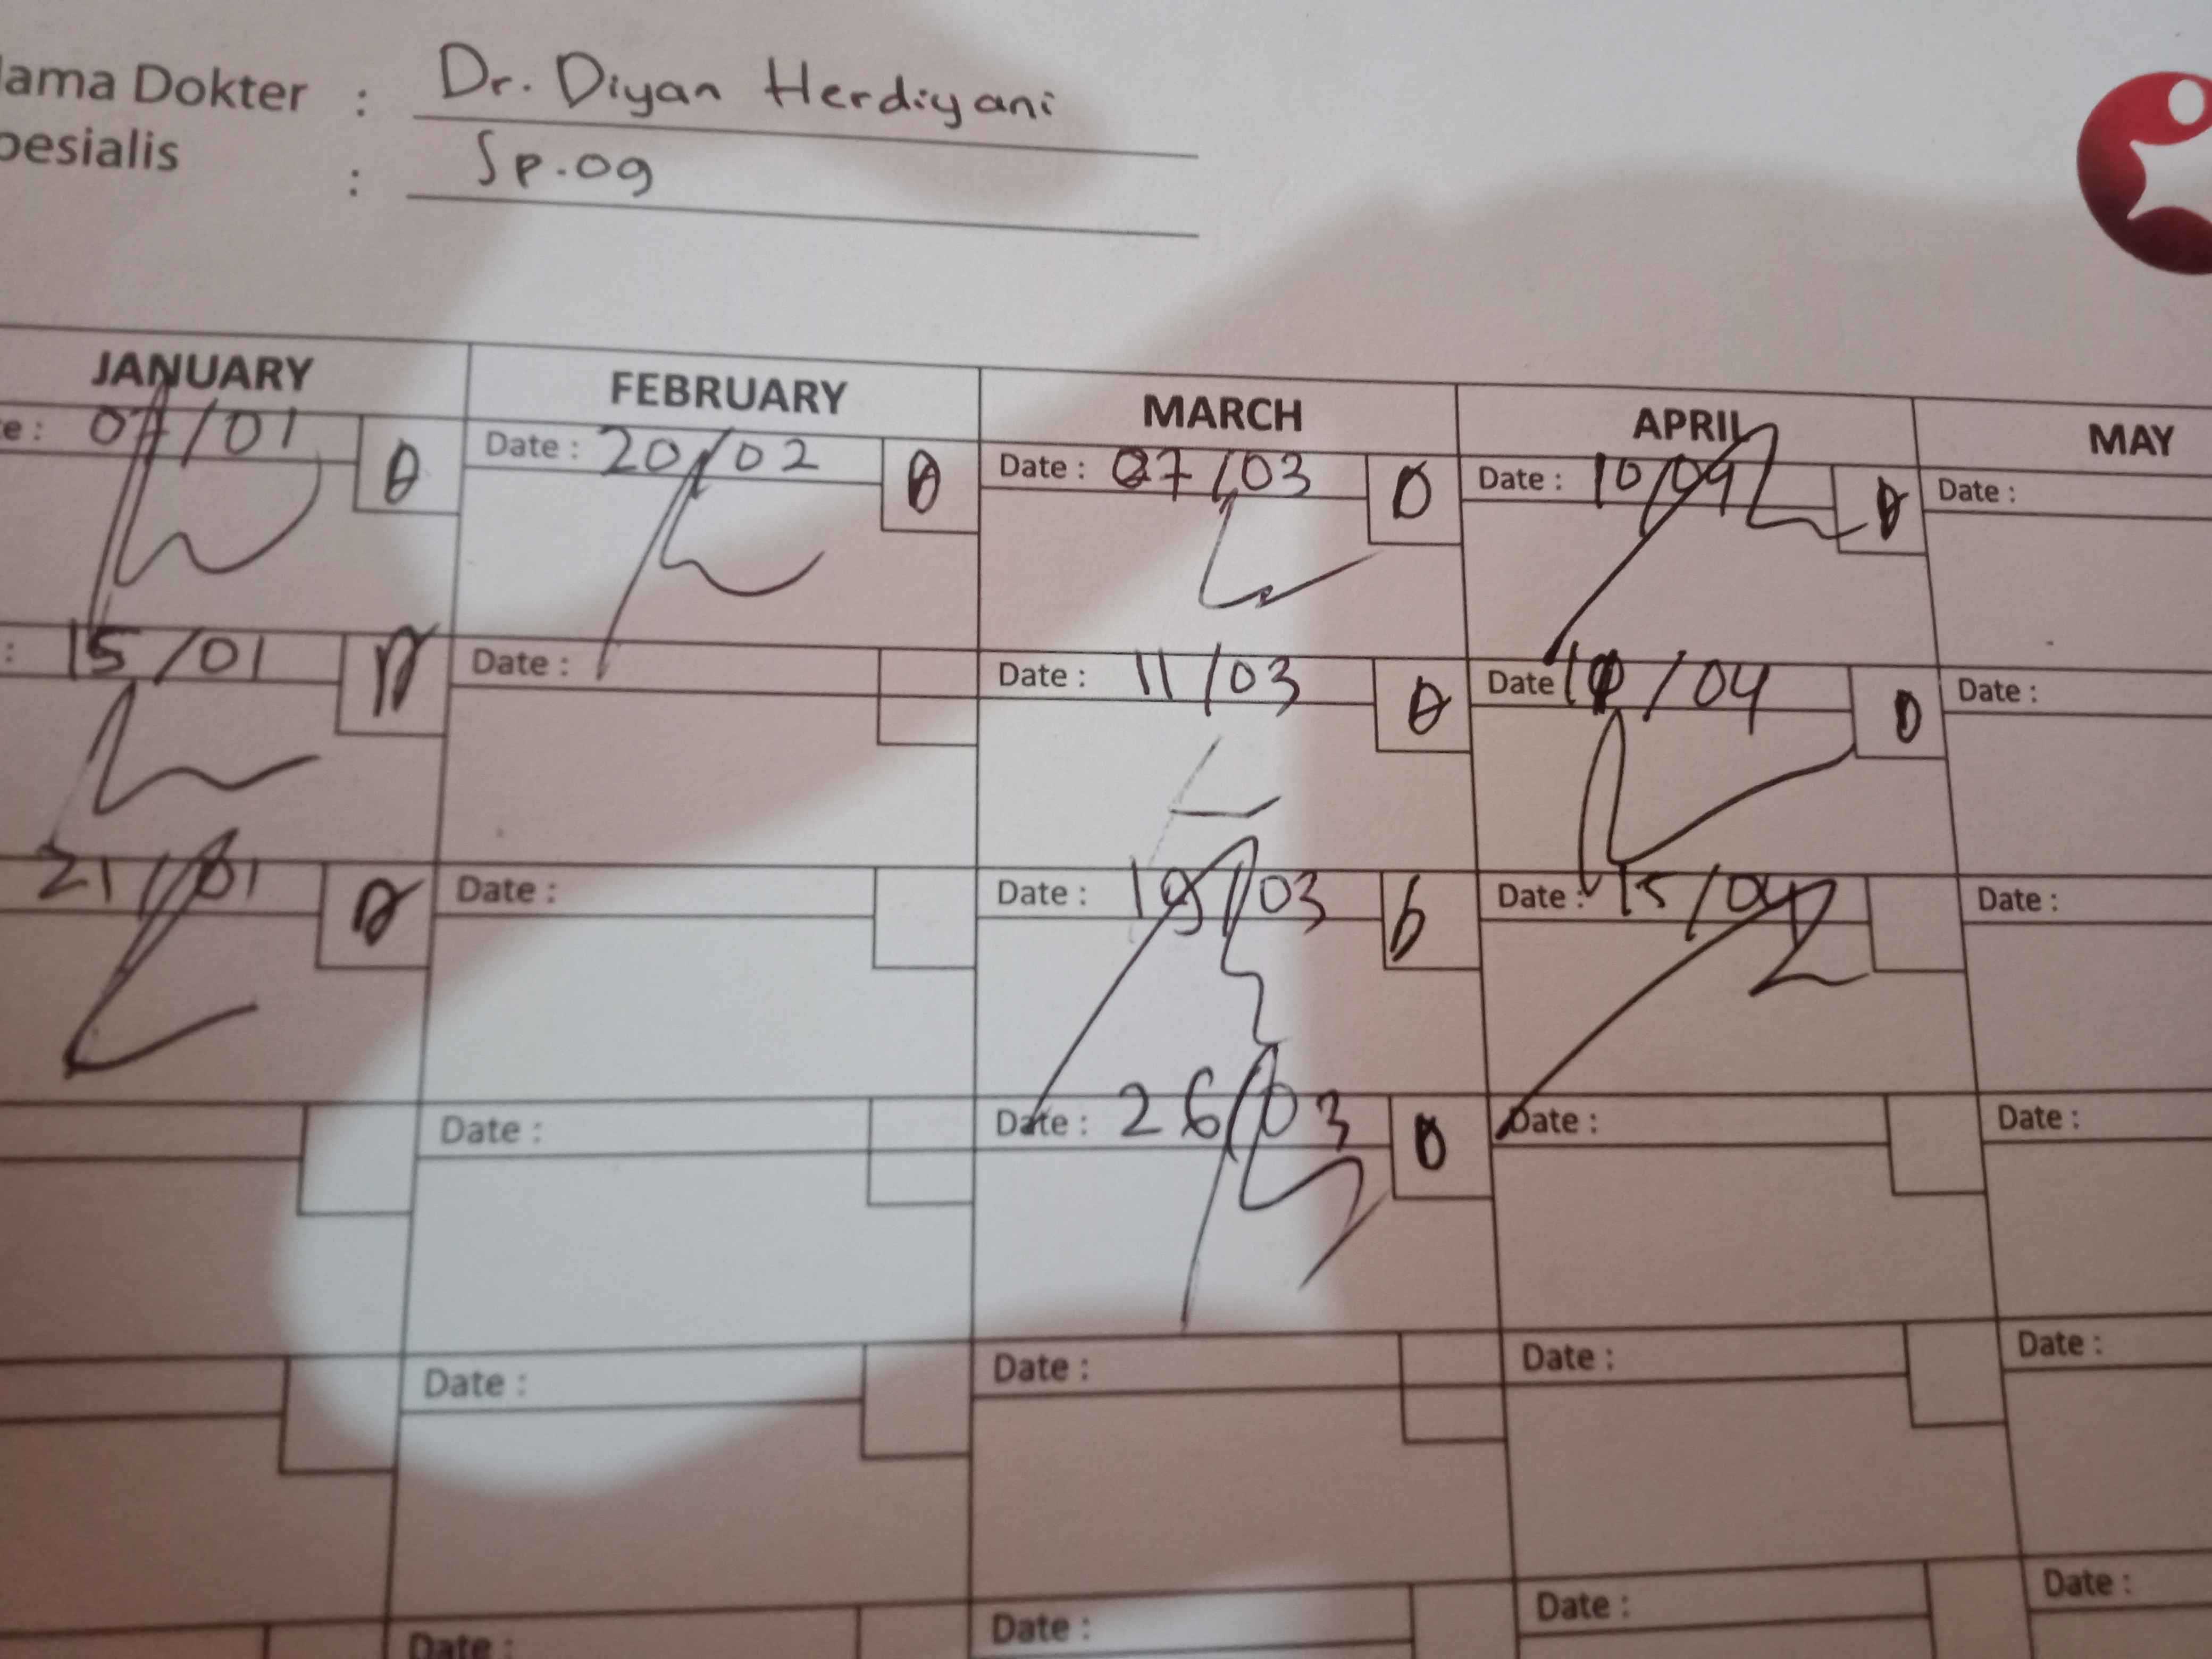 ama Dokter : Dr. Diyan Herdiyani
pesialis : Sp.og
JANUARY FEBRUARY MARCH APRIL MAY
e : 07/01 Date : 20/02 Date : 07/03 Date : 10/04 Date :
: 15/01 Date : Date : 11/03 Date / 04 Date :
21/01 Date : Date : 19/03 Date : 15/04 Date :
Date : Date : 26/03 Date : Date :
Date : Date : Date : Date :
Date : Date : Date : Date :